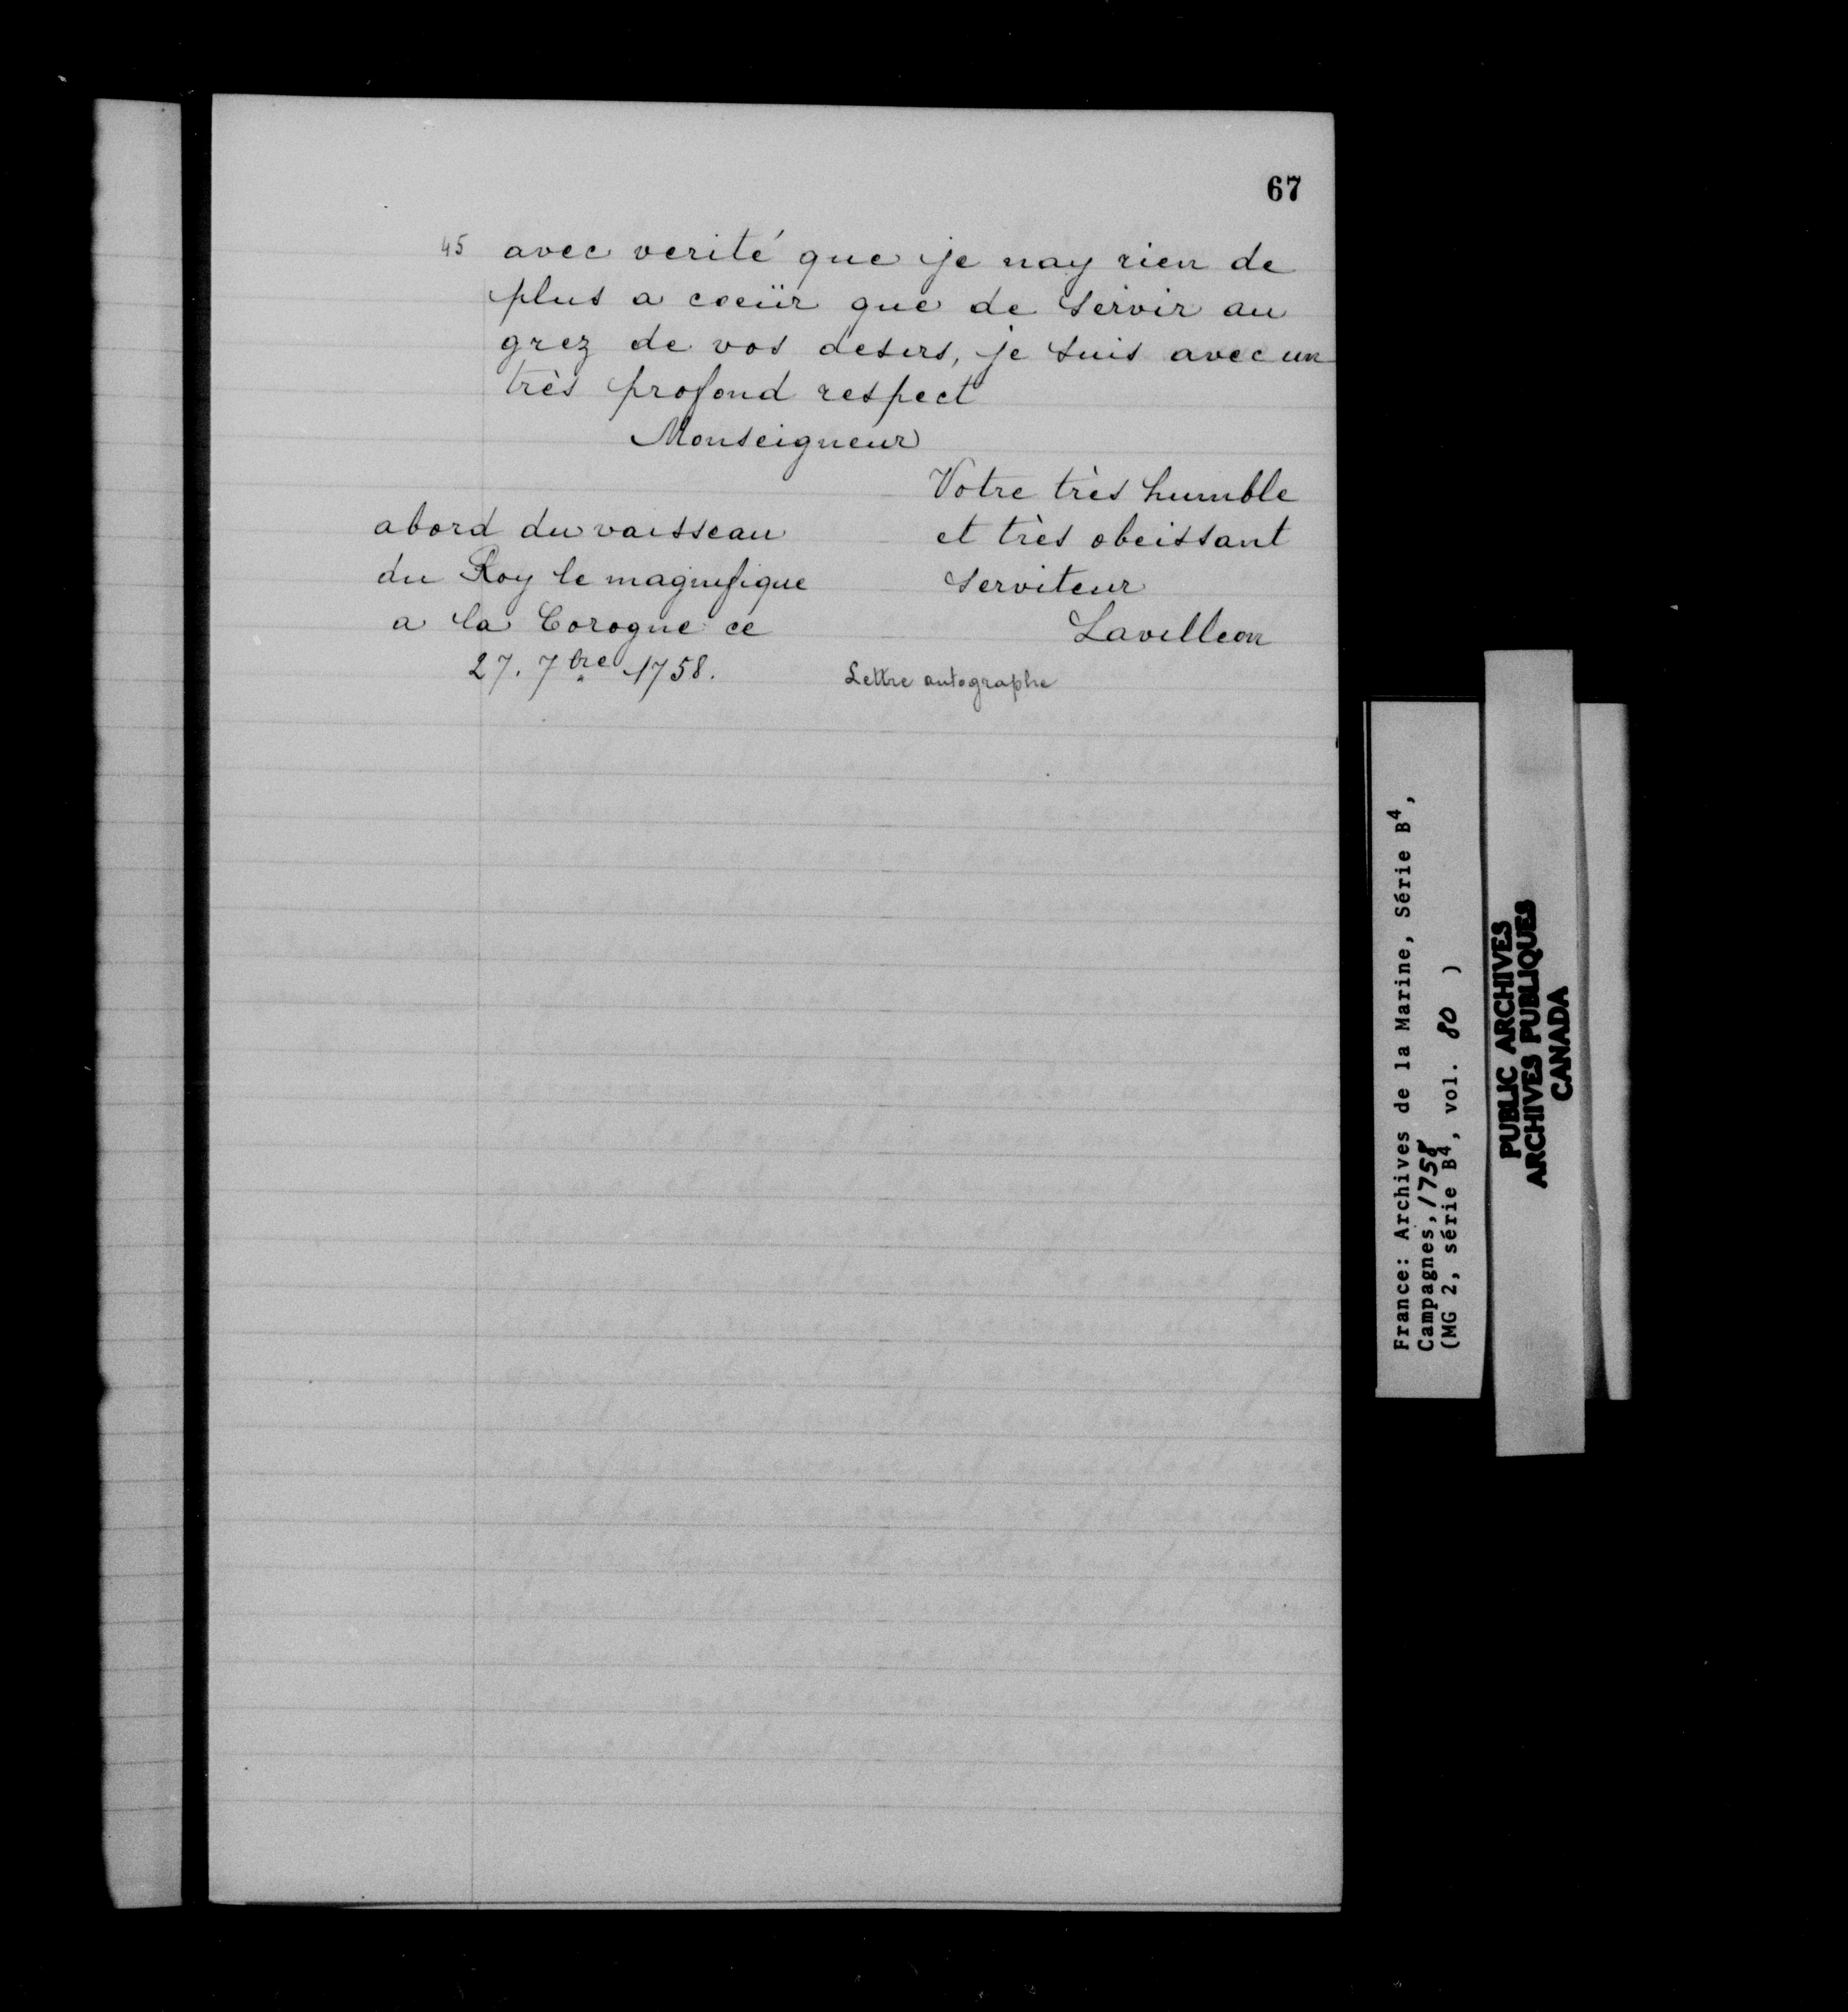 67
45 avec verité que je nay rien de
plus a coeür que de servir au
grez de vos desirs, je suis avec un
très profond respect
Monseigneur
Votre très humble
et très obeissant
serviteur
Lavilleon
abord du vaisseau
du Roy le magnifique
a la Corogne ce
27. 7bre 1758.
Lettre autographe
France: Archives de la Marine, Série B4,
Campagnes, 1758
(MG 2, série B4, vol. 80 )
PUBLIC ARCHIVES
ARCHIVES PUBLIQUES
CANADA